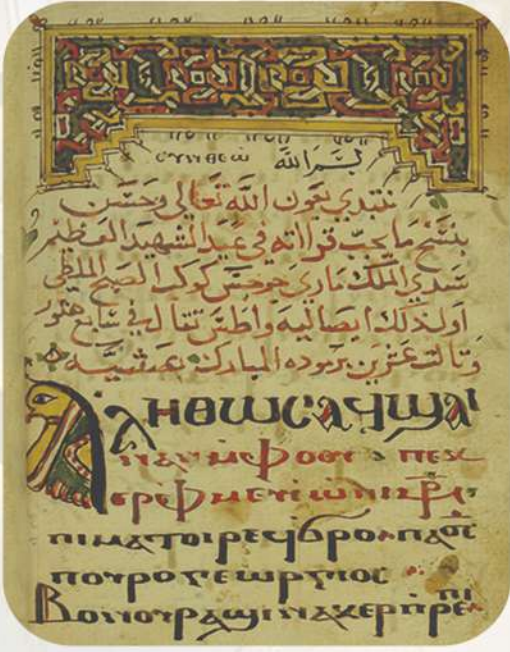 ⲥⲩⲛⲑⲉⲱ بسم الله
نبتدي بعون الله تعالى وحسن
بنسخ ما يجب قراته في عيد الشهيد العظيم
سدي الملك ماري جرجس كوكب الصبح الملطي
اول ذلك ابصاليه واطس تقال في سابع هتور
وثالث عشرين برموده المبارك بعشيه
Ⲁⲗⲏⲑⲱⲥ ⲁϥϣⲁⲓ
ⲙⲫⲟⲟⲩ
ⲉⲣⲫⲙⲉⲩⲓ
ⲡⲓⲙⲁⲧⲟⲓ ⲣⲉϥϭⲣⲟ
ⲡⲟⲩⲣⲟ ⲅⲉⲱⲣⲅⲓⲟⲥ
Ⲃⲟⲛ ⲟⲩⲣⲁϣⲓ